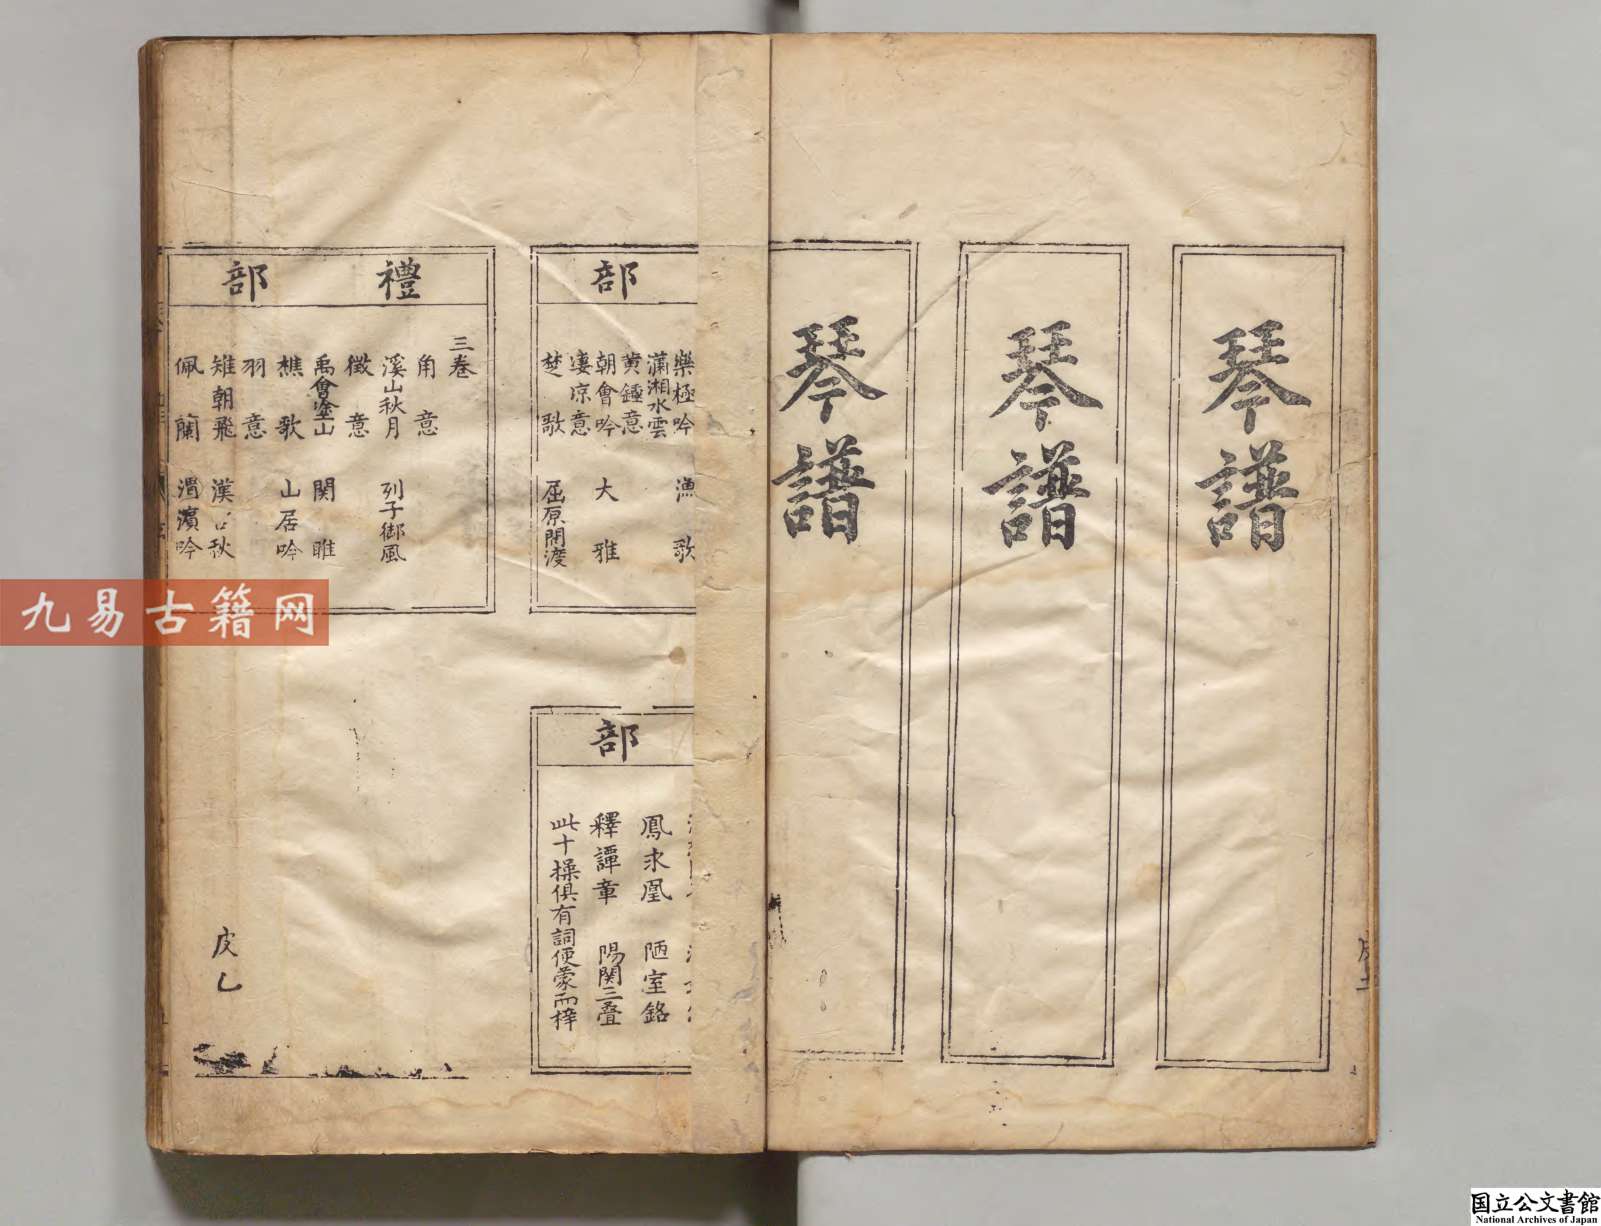 琴譜
琴譜
琴譜
部
樂極吟 漁歌
瀟湘水雲
黃鍾意
朝會吟 大雅
凄凉意
楚歌 屈原問渡
部
鳳求凰 陋室銘
釋譚章 陽関三疊
此十操俱有詞便蒙而梓
禮部
三卷
角意
溪山秋月 列子御風
徵意
禹會塗山 関雎
樵歌 山居吟
羽意
雉朝飛 漢宮秋
佩蘭 渭濱吟
九易古籍网
国立公文書館
National Archives of Japan